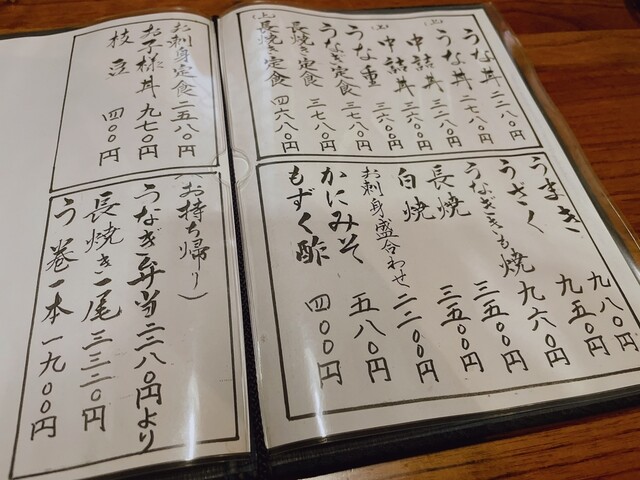 うな丼 二二八〇円
(上)うな丼 二七八〇円
中詰丼 三二八〇円
(上)中詰丼 三六〇〇円
うな重 三六〇〇円
うなぎ定食 三七八〇円
長焼き定食 三七八〇円
(上)長焼き定食 四六八〇円
うまき 九八〇円
うざく 九五〇円
うなぎきも焼 九六〇円
長焼 三五〇〇円
白焼 三五〇〇円
お刺身盛合わせ 二二〇〇円
かにみそ 五八〇円
もずく酢 四〇〇円
お刺身定食 二五八〇円
お子様丼 九七〇円
枝豆 四〇〇円
(お持ち帰り)
うなぎ弁当 二二八〇円より
長焼き一尾 三三二〇円
う巻一本 一九〇〇円